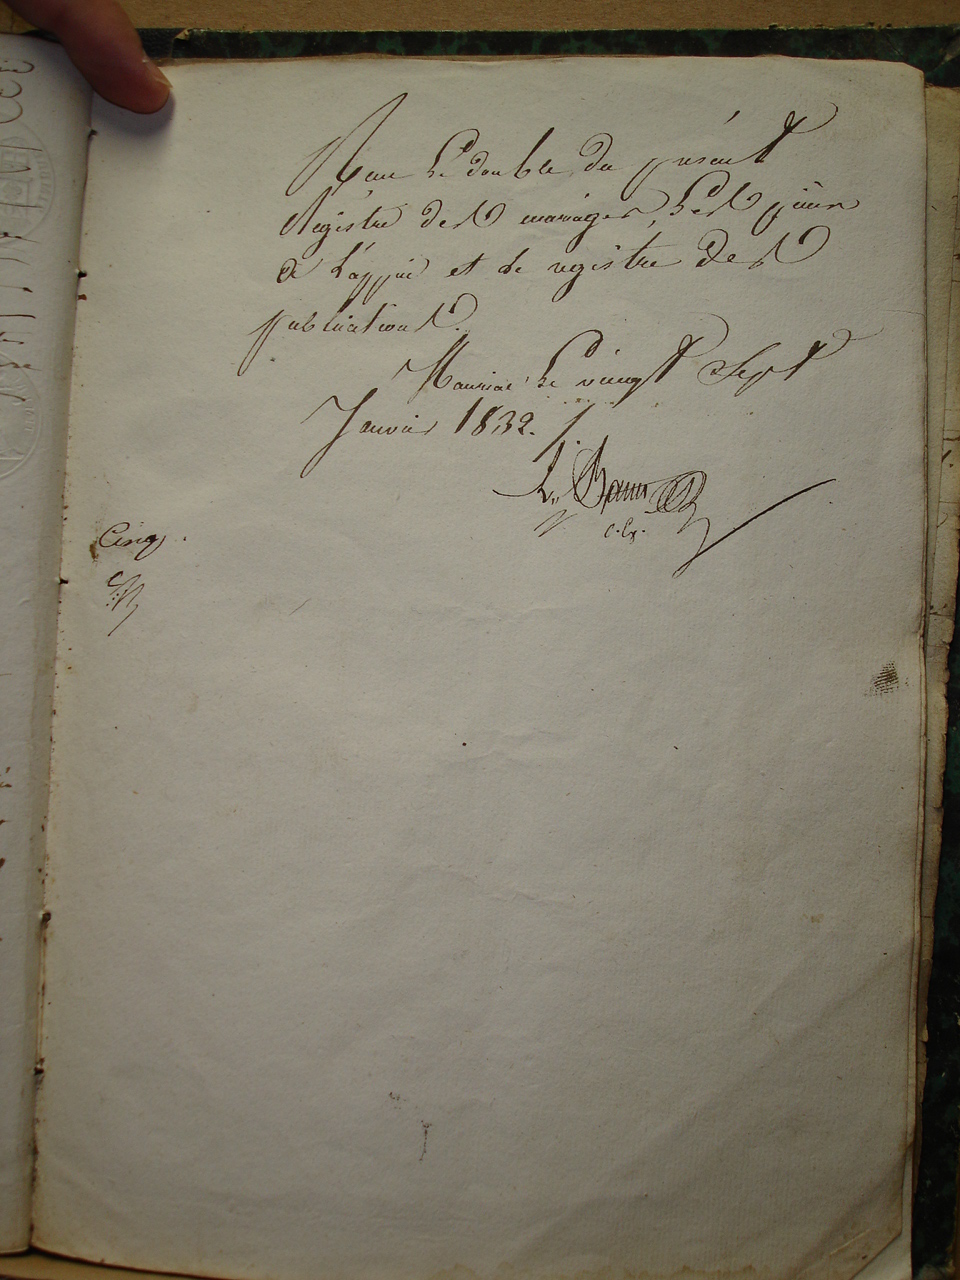 Reçu le double du présent
Registre des mariages, les pièces
à l'appui et le registre des
publications.
Mauriac le vingt Sept
Janvier 1832.
Cinq